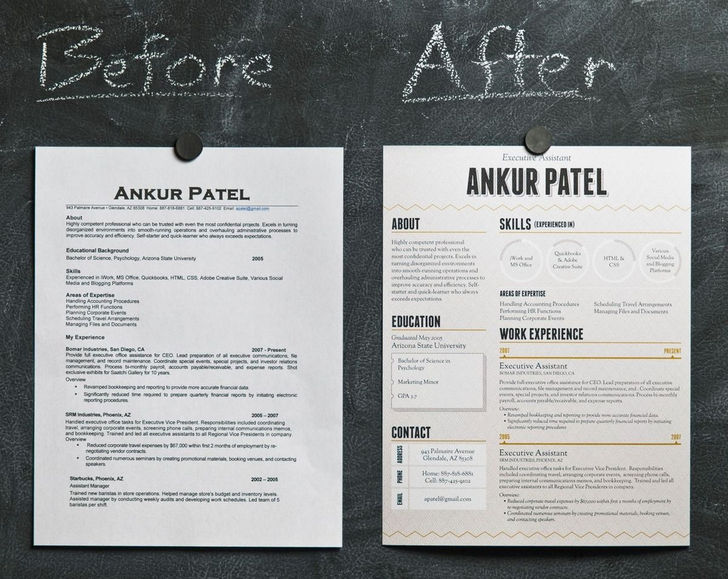 Before
ANKUR PATEL
943 Palmaire Avenue • Glendale, AZ 85308 Home: 887-818-6881 Cell: 887-425-9102 Email: apatel@gmail.com
About
Highly competent professional who can be trusted with even the most confidential projects. Excels in turning
disorganized environments into smooth-running operations and overhauling administrative processes to
improve accuracy and efficiency. Self-starter and quick-learner who always exceeds expectations.
Educational Background
Bachelor of Science, Psychology, Arizona State University 2005
Skills
Experienced in iWork, MS Office, Quickbooks, HTML, CSS, Adobe Creative Suite, Various Social
Media and Blogging Platforms
Areas of Expertise
Handling Accounting Procedures
Performing HR Functions
Planning Corporate Events
Scheduling Travel Arrangements
Managing Files and Documents
My Experience
Bomar Industries, San Diego, CA 2007 - Present
Provide full executive office assistance for CEO. Lead preparation of all executive communications, file
management, and record maintenance. Coordinate special events, special projects, and investor relations
communications. Process bi-monthly payroll, accounts payable/receivable, and expense reports. Shot
exclusive exhibits for Saatchi Gallery for 10 years.
Overview
• Revamped bookkeeping and reporting to provide more accurate financial data.
• Significantly reduced time required to prepare quarterly financial reports by initiating electronic
reporting procedures.
SRM Industries, Phoenix, AZ 2005 – 2007
Handled executive office tasks for Executive Vice President. Responsibilities included coordinating
travel, arranging corporate events, screening phone calls, preparing internal communications memos,
and bookkeeping. Trained and led all executive assistants to all Regional Vice Presidents in company
Overview
• Reduced corporate travel expenses by $67,000 within first 2 months of employment by re-
negotiating vendor contracts.
• Coordinated numerous seminars by creating promotional materials, booking venues, and contacting
speakers.
Starbucks, Phoenix, AZ 2002 – 2005
Assistant Manager
Trained new baristas in store operations. Helped manage store's budget and inventory levels.
Assisted manager by conducting weekly audits and developing work schedules. Led team of 5
baristas per shift.
After
Executive Assistant
ANKUR PATEL
ABOUT
Highly competent professional
who can be trusted with even the
most confidential projects. Excels in
turning disorganized environments
into smooth-running operations and
overhauling administrative processes to
improve accuracy and efficiency. Self-
starter and quick-learner who always
exceeds expectations.
EDUCATION
Graduated May 2005
Arizona State University
Bachelor of Science in
Psychology
Marketing Minor
GPA 3.7
CONTACT
ADDRESS
943 Palmaire Avenue
Glendale, AZ 85308
PHONE
Home: 887-818-6881
Cell: 887-425-9102
EMAIL
apatel@gmail.com
SKILLS (EXPERIENCED IN)
iWork and
MS Office
Quickbooks
& Adobe
Creative Suite
HTML &
CSS
Various
Social Media
and Blogging
Platforms
AREAS OF EXPERTISE
Handling Accounting Procedures
Performing HR Functions
Planning Corporate Events
Scheduling Travel Arrangements
Managing Files and Documents
WORK EXPERIENCE
2007 PRESENT
Executive Assistant
BOMAR INDUSTRIES, SAN DIEGO, CA
Provide full executive office assistance for CEO. Lead preparation of all executive
communications, file management, and record maintenance, and. Coordinate special
events, special projects, and investor relations communications. Process bi-monthly
payroll, accounts payable/receivable, and expense reports.
Overview:
• Revamped bookkeeping and reporting to provide more accurate financial data.
• Significantly reduced time required to prepare quarterly financial reports by initiating
electronic reporting procedures
2005 2007
Executive Assistant
SRM INDUSTRIES, PHOENIX, AZ
Handled executive office tasks for Executive Vice President. Responsibilities
included coordinating travel, arranging corporate events, screening phone calls,
preparing internal communications memos, and bookkeeping. Trained and led all
executive assistants to all Regional Vice Presidents in company.
Overview:
• Reduced corporate travel expenses by $67,000 within first 2 months of employment by
re-negotiating vendor contracts.
• Coordinated numerous seminars by creating promotional materials, booking venues,
and contacting speakers.